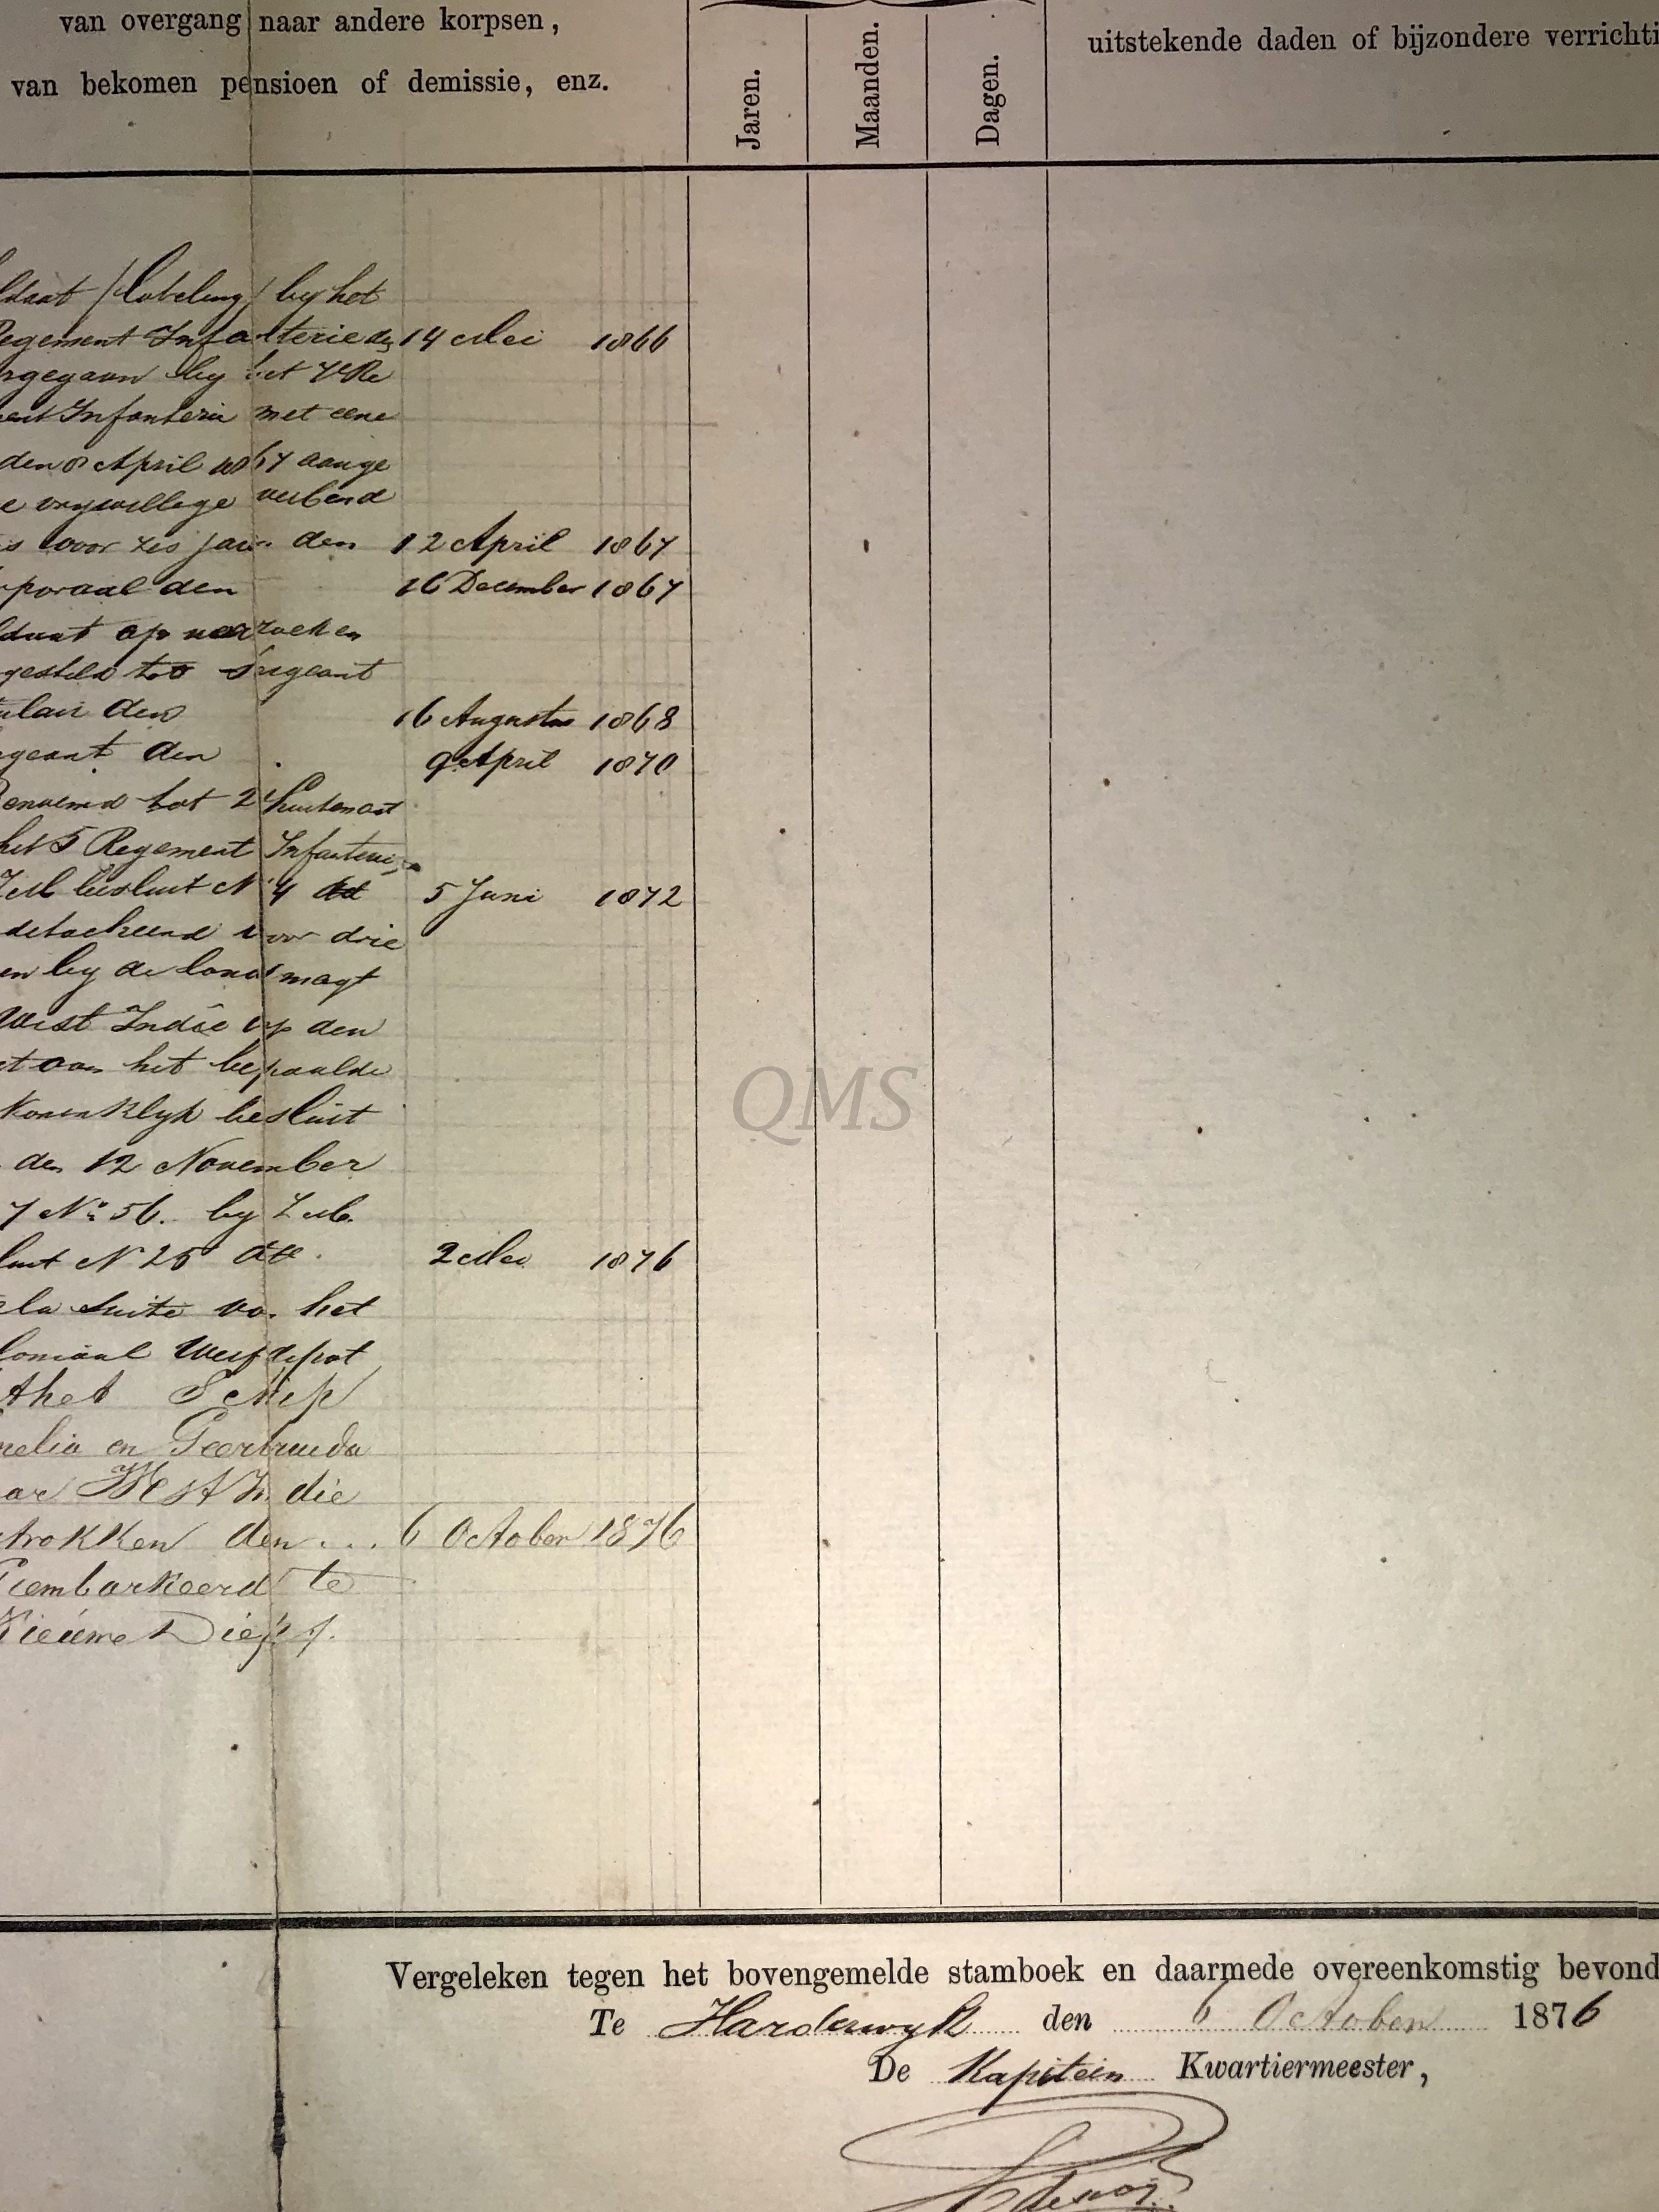 van overgang naar andere korpsen,
van bekomen pensioen of demissie, enz.
Jaren.
Maanden.
Dagen.
uitstekende daden of bijzondere verrichti
ldaat / loteling / by het
Regement Infanterie den 14 Mei 1866
rgegaan by het 7e Re
ment Infanterie met eene
den 8 April 1867 aange
e vrywillege verbend
is voor zes jaar den 12 April 1867
rporaal den 16 December 1867
ldaat op verzoek en
gesteld tot Sergeant
ulair den 16 Augustus 1868
geant den 9 April 1870
Benoemd tot 2e luitenant
het 5 Regement Infanterie
besluit N 4 dd 5 Juni 1872
detacheerd voor drie
en by de landmagt
West Indie op den
et aan het bepaalde
Koninklyk besluit
den 12 November
7 No 56. by Z.M.
luit N 25 dd 2 Mei 1876
la Suite van het
loniaal Werfdepot
t het Schip
nelia en Geertruida
ar West Indie
trokken den ... 6 October 1876
Geembarkeerd te
Nieuwe Diep.
QMS
Vergeleken tegen het bovengemelde stamboek en daarmede overeenkomstig bevond
Te Harderwyk den 6 October 1876
De Kapitein Kwartiermeester,